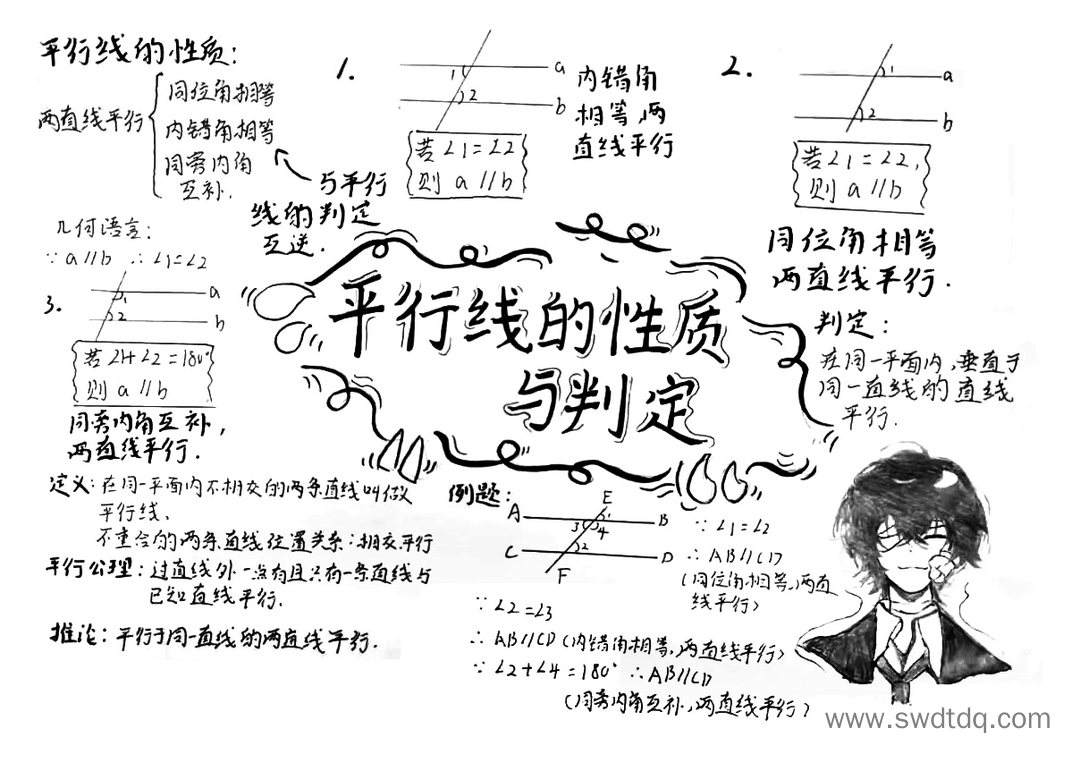 平行线的性质:
两直线平行
同位角相等
内错角相等
同旁内角
互补.
与平行
线的判定
互逆.
几何语言:
∵ a∥b ∴ ∠1=∠2
1.
a
b
1
2
内错角
相等,两
直线平行
若∠1=∠2
则 a∥b
2.
a
b
1
2
若∠1=∠2,
则 a∥b
同位角相等
两直线平行.
3.
a
b
1
2
若∠1+∠2=180°
则 a∥b
同旁内角互补,
两直线平行.
平行线的性质
与判定
判定:
在同一平面内,垂直于
同一直线的直线
平行.
定义:在同一平面内不相交的两条直线叫做
平行线.
不重合的两条直线位置关系:相交,平行
平行公理:过直线外一点有且只有一条直线与
已知直线平行.
推论:平行于同一直线的两直线平行.
例题:
E
A
B
1
3
4
C
2
D
F
∵ ∠1=∠2
∴ AB∥CD
(同位角相等,两直
线平行)
∵ ∠2=∠3
∴ AB∥CD(内错角相等,两直线平行)
∵ ∠2+∠4=180° ∴AB∥CD
(同旁内角互补,两直线平行)
www.swdtdq.com